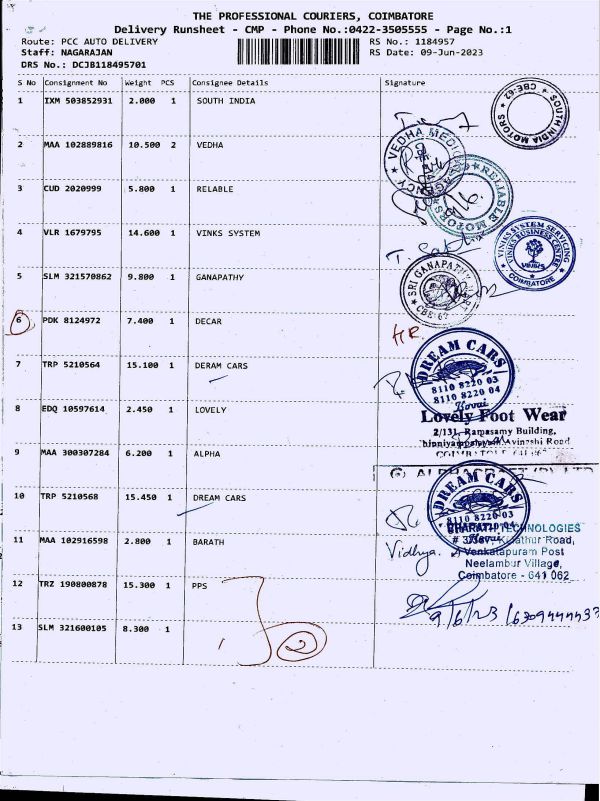 THE PROFESSIONAL COURIERS, COIMBATORE
Delivery Runsheet - CMP - Phone No.:0422-3505555 - Page No.:1
Route: PCC AUTO DELIVERY RS No.: 1184957
Staff: NAGARAJAN RS Date: 09-Jun-2023
DRS No.: DCJB118495701
S No Consignment No Weight PCS Consignee Details Signature
1 IXM 503852931 2.000 1 SOUTH INDIA
SOUTH INDIA MOTORS CBE-62
2 MAA 102889816 10.500 2 VEDHA
VEDHA MEDICAL AGENCY
3 CUD 2020999 5.800 1 RELABLE
RELIABLE MOTORS
4 VLR 1679795 14.600 1 VINKS SYSTEM
VINKS SYSTEM SERVICING
VINKS BUSINESS CENTRE
VINKS
COIMBATORE
5 SLM 321570862 9.800 1 GANAPATHY
SRI GANAPATHY
CBE-62
6 PDK 8124972 7.400 1 DECAR
HR
7 TRP 5210564 15.100 1 DERAM CARS
DREAM CARS
8110 8220 03
8110 8220 04
Kovai
8 EDQ 10597614 2.450 1 LOVELY
Lovely Foot Wear
2/131, Ramasamy Building,
Avinashi Road
9 MAA 300307284 6.200 1 ALPHA
10 TRP 5210568 15.450 1 DREAM CARS
DREAM CARS
8110 8220 03
Kovai
11 MAA 102916598 2.800 1 BARATH
BHARATH TECHNOLOGIES
Vidhya.
Venkatapuram Post
Neelambur Village,
Coimbatore - 641 062
12 TRZ 190800878 15.300 1 PPS
9/6/23
13 SLM 321600105 8.300 1
2